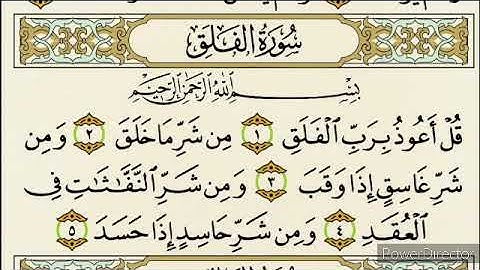 سُورَةُ الْفَلَقِ
بِسْمِ اللَّهِ الرَّحْمَٰنِ الرَّحِيمِ
قُلْ أَعُوذُ بِرَبِّ الْفَلَقِ ١ مِن شَرِّ مَا خَلَقَ ٢ وَمِن
شَرِّ غَاسِقٍ إِذَا وَقَبَ ٣ وَمِن شَرِّ النَّفَّاثَاتِ فِي
الْعُقَدِ ٤ وَمِن شَرِّ حَاسِدٍ إِذَا حَسَدَ ٥
PowerDirector